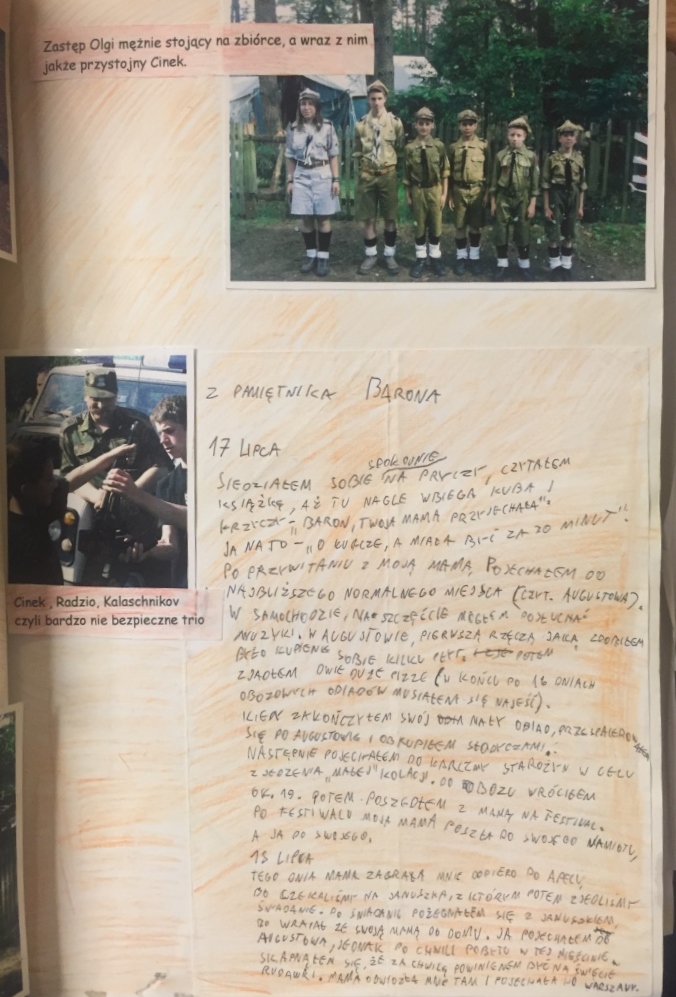 Zastęp Olgi mężnie stojący na zbiórce, a wraz z nim
jakże przystojny Cinek.
Cinek , Radzio, Kalaschnikov
czyli bardzo nie bezpieczne trio
Z PAMIĘTNIKA BARONA
17 LIPCA
SIEDZIAŁEM SOBIE SPOKOJNIE NA PRYCZY, CZYTAŁEM
KSIĄŻKĘ, AŻ TU NAGLE WBIEGA KUBA I
KRZYCZY - "BARON, TWOJA MAMA PRZYJECHAŁA".
JA NA TO - "O KURCZE, A MIAŁA BYĆ ZA 30 MINUT".
PO PRZYWITANIU Z MOJĄ MAMĄ, POJECHAŁEM DO
NAJBLIŻSZEGO NORMALNEGO MIEJSCA (CZYT. AUGUSTOWA).
W SAMOCHODZIE, NA SZCZĘŚCIE MOGŁEM POSŁUCHAĆ
MUZYKI. W AUGUSTOWIE, PIERWSZĄ RZECZĄ JAKĄ ZROBIŁEM
BYŁO KUPIENIE SOBIE KILKU PŁYT. POTEM
ZJADŁEM DWIE DUŻE PIZZE (W KOŃCU PO 16 DNIACH
OBOZOWYCH OBIADÓW MUSIAŁEM SIĘ NAJEŚĆ).
KIEDY ZAKOŃCZYŁEM SWÓJ MAŁY OBIAD, PRZESPACEROWAŁEM
SIĘ PO AUGUSTOWIE I OBKUPIŁEM SŁODYCZAMI.
NASTĘPNIE POJECHAŁEM DO KARCZMY STAROŻYN W CELU
ZJEDZENIA "MAŁEJ" KOLACJI. DO OBOZU WRÓCIŁEM
OK. 19. POTEM POSZEDŁEM Z MAMĄ NA FESTIWAL.
PO FESTIWALU MOJA MAMA POSZŁA DO SWOJEGO NAMIOTU,
A JA DO SWOJEGO.
LIPCA
TEGO DNIA MAMA ZABRAŁA MNIE DOPIERO PO APELU,
BO CZEKALIŚMY NA JANUSZKA, Z KTÓRYM POTEM ZJEDLIŚMY
ŚNIADANIE. PO ŚNIADANIU POŻEGNAŁEM SIĘ Z JANUSZKIEM,
BO WRACAŁ ZE SWOJĄ MAMĄ DO DOMU. JA POJECHAŁEM DO
AUGUSTOWA, JEDNAK PO CHWILI POBYTU W TEJ MIEŚCINIE,
SKAPNĄŁEM SIĘ, ŻE ZA CHWILĘ POWINIENEM BYĆ NA ŚWIĘCIE
RUDAWKI. MAMA ODWIOZŁA MNIE TAM I POJECHAŁA DO WARSZAWY.